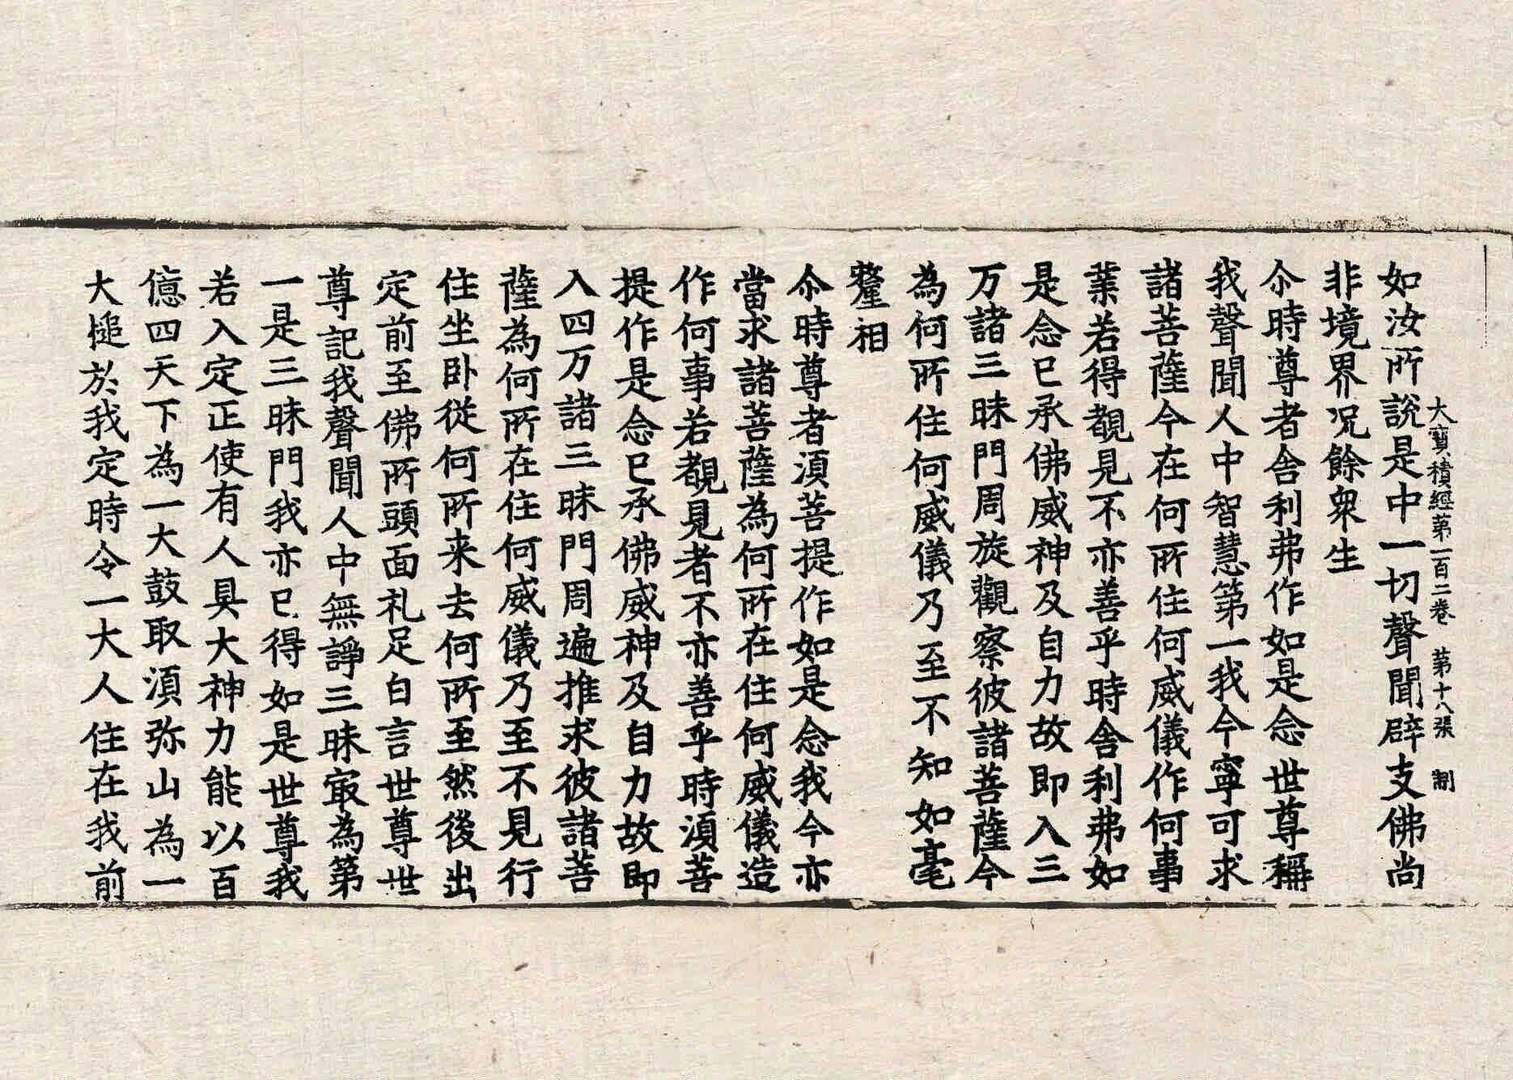 大寶積經第一百二卷 第十八張 制
如汝所說是中一切聲聞辟支佛尚
非境界況餘衆生
尒時尊者舍利弗作如是念世尊稱
我聲聞人中智慧第一我今寧可求
諸菩薩今在何所住何威儀作何事
業若得覩見不亦善乎時舍利弗如
是念已承佛威神及自力故即入三
万諸三昧門周旋觀察彼諸菩薩今
為何所住何威儀乃至不知如毫
氂相
尒時尊者湏菩提作如是念我今亦
當求諸菩薩為何所在住何威儀造
作何事若覩見者不亦善乎時湏菩
提作是念已承佛威神及自力故即
入四万諸三昧門周遍推求彼諸菩
薩為何所在住何威儀乃至不見行
住坐卧從何所来去何所至然後出
定前至佛所頭面礼足白言世尊世
尊記我聲聞人中無諍三昧冣為第
一是三昧門我亦已得如是世尊我
若入定正使有人具大神力能以百
億四天下為一大鼓取湏弥山為一
大槌於我定時令一大人住在我前